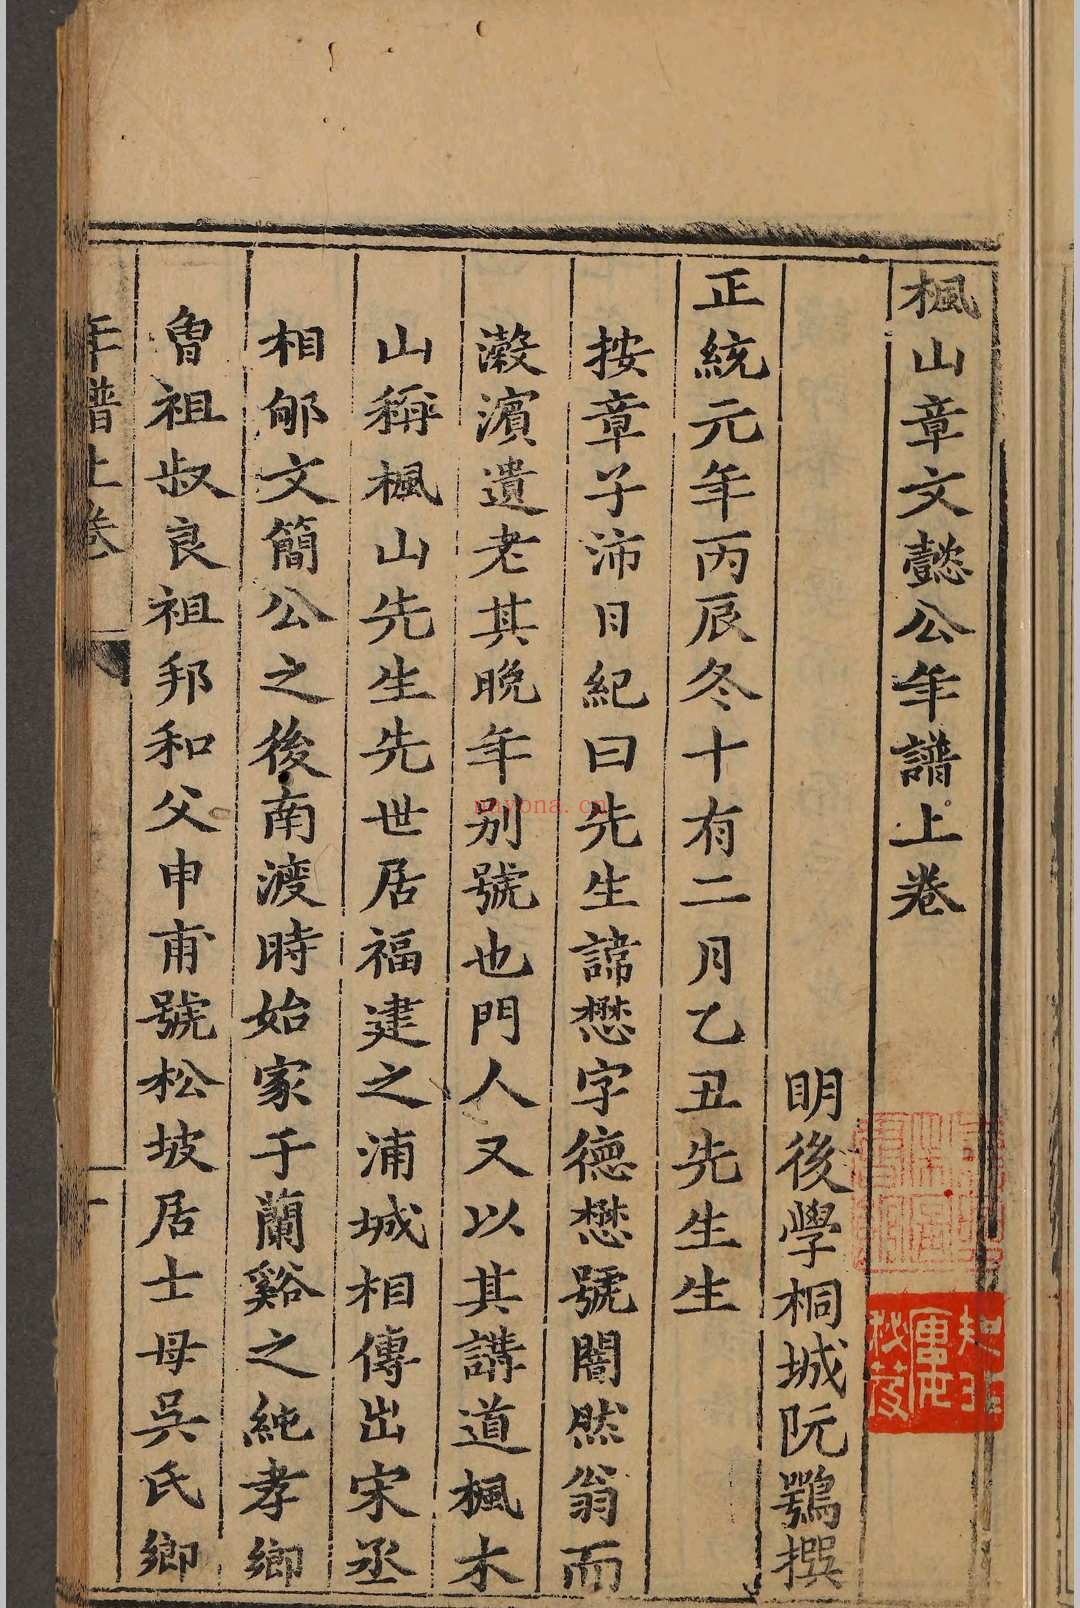 楓山章文懿公年譜上卷
明後學桐城阮鶚撰
正統元年丙辰冬十有二月乙丑先生生
按章子沛日紀曰先生諱懋字德懋號闇然翁而
瀔濱遺老其晚年別號也門人又以其講道楓木
山稱楓山先生先世居福建之浦城相傳出宋丞
相郇文簡公之後南渡時始家于蘭谿之純孝鄉
曾祖叔良祖邦和父申甫號松坡居士母吳氏鄉
年譜上卷
一
nayona.cn